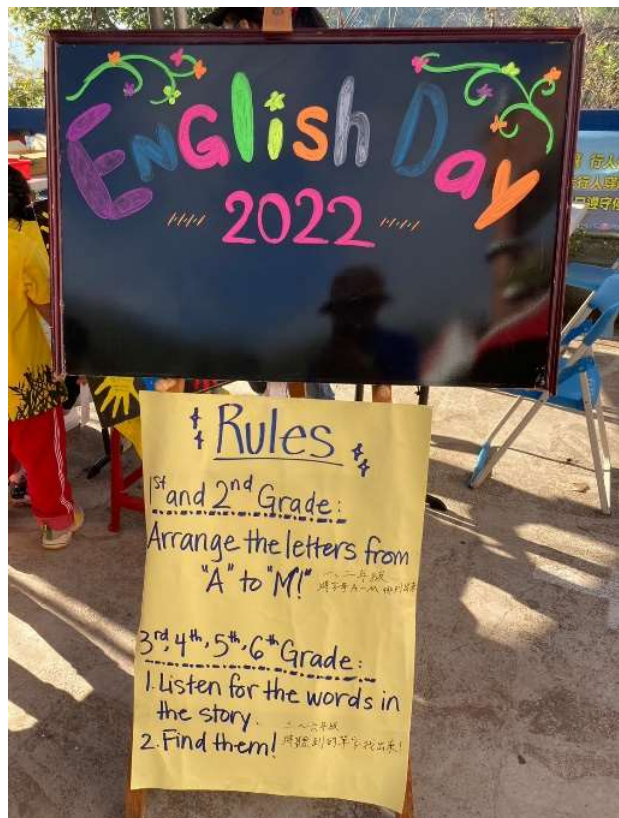 English Day
2022
Rules
1st and 2nd Grade:
Arrange the letters from
"A" to "M!"
一、二年級
將字母A-M排列出來
3rd, 4th, 5th, 6th Grade:
1. Listen for the words in
the story.
2. Find them!
將聽到的單字找出來!
行人
行人
遵守